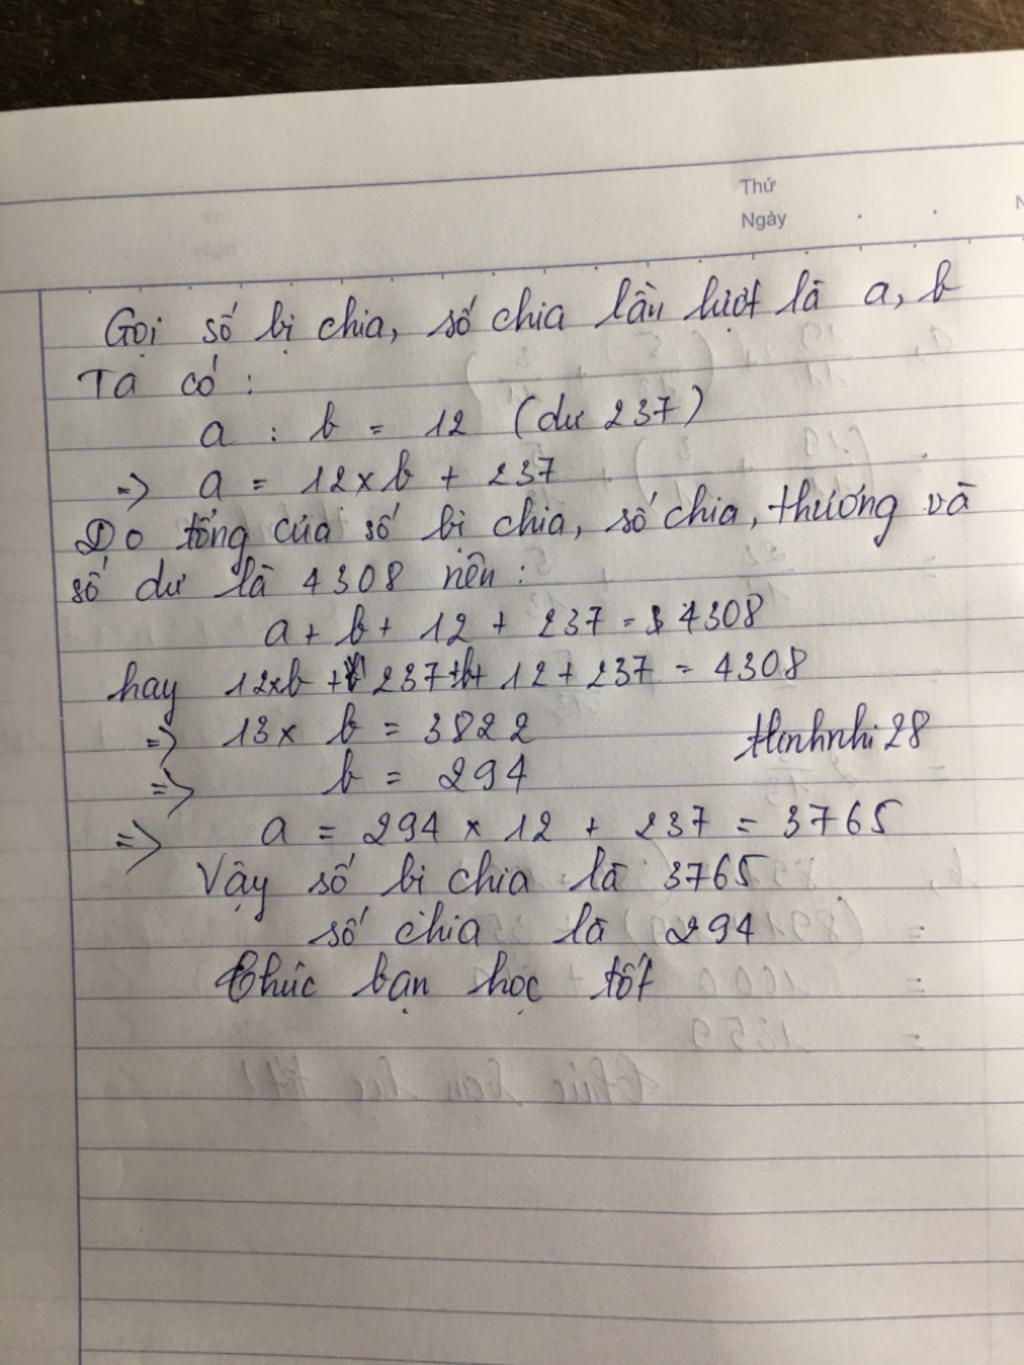 Thứ
Ngày
Gọi số bị chia, số chia lần lượt là a, b
Ta có :
a : b = 12 (dư 237)
=> a = 12 x b + 237
Do tổng của số bị chia, số chia, thương và
số dư là 4308 nên :
a + b + 12 + 237 = 4308
hay 12xb + 237 + b + 12 + 237 = 4308
=> 13 x b = 3822
=> b = 294
=> a = 294 x 12 + 237 = 3765
Vậy số bị chia là 3765
số chia là 294
Chúc bạn học tốt